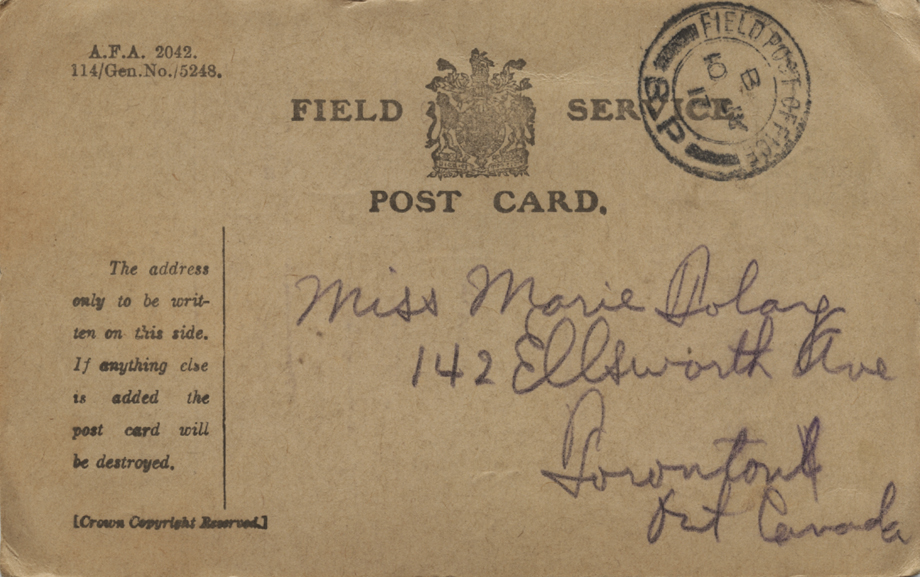 A.F.A. 2042.
114/Gen.No./5248.
FIELD SERVICE
POST CARD.
FIELD POST OFFICE
The address
only to be writ-
ten on this side.
If anything else
is added the
post card will
be destroyed.
[Crown Copyright Reserved.]
Miss Marie
142 Ellsworth Ave
Toronto
Ont Canada